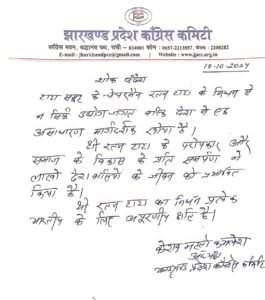 झारखण्ड प्रदेश काँग्रेस कमिटी
काँग्रेस भवन, श्रद्धानन्द पथ, रांची - 834001 फोन : 0657-2213557, फैक्स : 2200282
E-mail : jharkhandpcc@gmail.com Website : www.jpcc.org.in
10-10-2024
शोक संदेश
टाटा समूह के चेयरमैन रतन टाटा के निधन से
न सिर्फ उद्योग जगत बल्कि देश ने एक
असाधारण मार्गदर्शक खोया है।
श्री रतन टाटा के परोपकार और
समाज के विकास के प्रति समर्पण ने
लाखों देश वासियों के जीवन को प्रभावित
किया है।
श्री रतन टाटा का निधन प्रत्येक
भारतीय के लिए अपूरणीय क्षति है।
केशव महतो कमलेश
अध्यक्ष
झारखण्ड प्रदेश काँग्रेस कमिटी